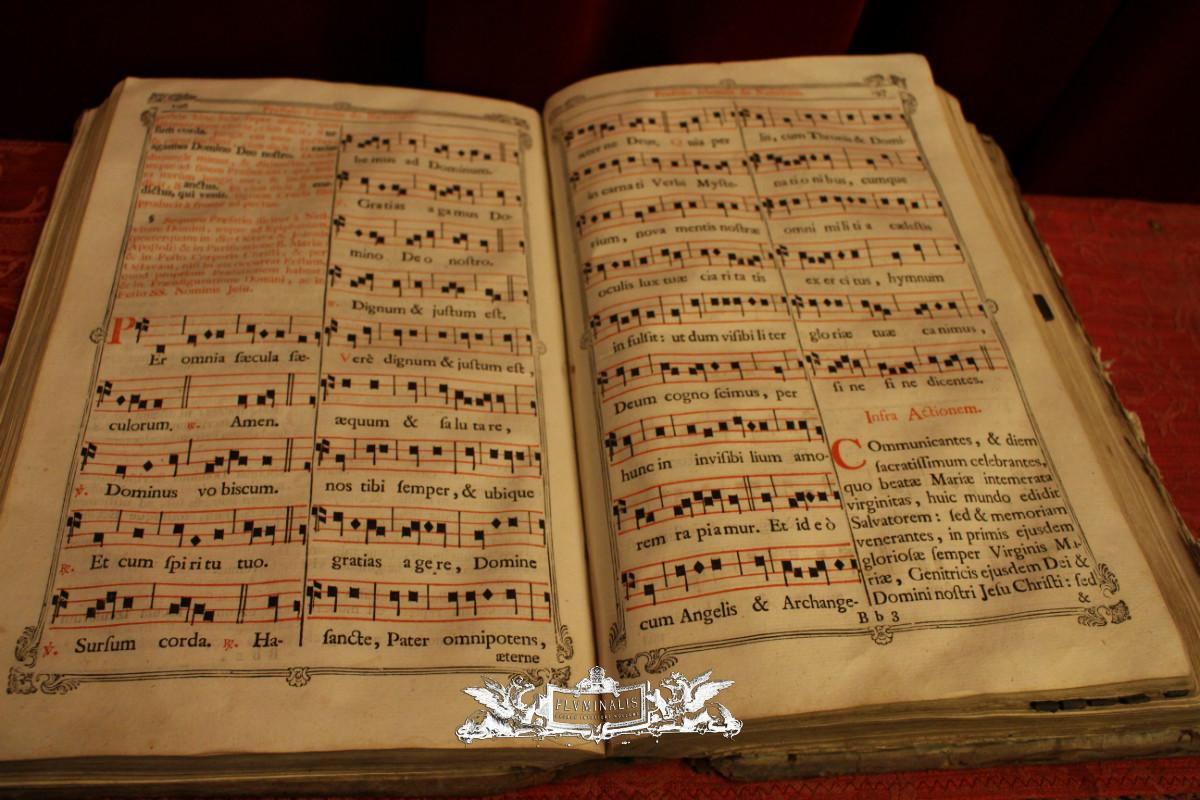 sum corda.
agamus Domino Deo nostro.
anctus.
dictus, qui venit.
Per omnia sæcula sæ-
culorum. ℟. Amen.
℣. Dominus vo biscum.
℟. Et cum spi ri tu tuo.
℣. Sursum corda. ℟. Ha-
be mus ad Dominum.
Gratias a ga mus Do-
mino De o nostro.
Dignum & justum est.
Verè dignum & justum est,
æquum & sa lu ta re,
nos tibi semper, & ubique
gratias a ge re, Domine
sancte, Pater omnipotens,
æterne
æter ne Deus. Q uia per
in carna ti Verbi Myste-
rium, nova mentis nostræ
oculis lux tuæ cla ri ta tis
in fulsit: ut dum visibi li ter
Deum cogno scimus, per
hunc in invisibi lium amo-
rem ra pia mur. Et id e ò
cum Angelis & Archange-
lis, cum Thronis & Domi-
na ti o ni bus, cumque
omni mi li ti a cælestis
ex er ci tus, hymnum
glo riæ tuæ ca nimus,
si ne fi ne dicentes.
Infra Actionem.
COmmunicantes, & diem
sacratissimum celebrantes,
quo beatæ Mariæ intemerata
virginitas, huic mundo edidit
Salvatorem: sed & memoriam
venerantes, in primis ejusdem
gloriosæ semper Virginis Ma-
riæ, Genitricis ejusdem Dei &
Domini nostri Jesu Christi: sed
&
B b 3
FLVMINALIS